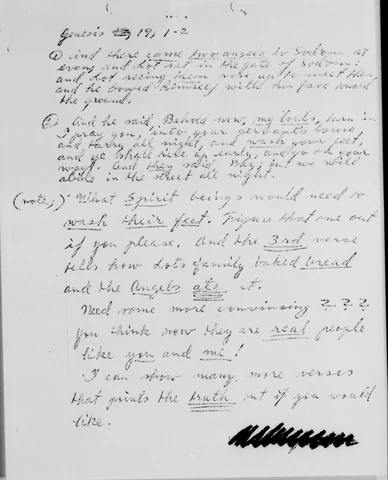 Genesis 19, 1-2
① And there came two angels to Sodom at
even; and Lot sat in the gate of Sodom:
and Lot seeing them rose up to meet them;
and he bowed himself with his face toward
the ground.
② And he said, Behold now, my lords, turn in
I pray you, into your servants house
and tarry all night, and wash your feet,
and ye shall rise up early, and go on your
ways. And they said, Nay, but we will
abide in the street all night.
(note;) What Spirit beings would need to
wash their feet. Figure that one out
if you please. And the 3rd verse
tells how Lots family baked bread
and the Angels ate it.
Need some more convincing ? ? ?
You think now they are real people
like you and me!
I can show many more verses
that points the truth out if you would
like.